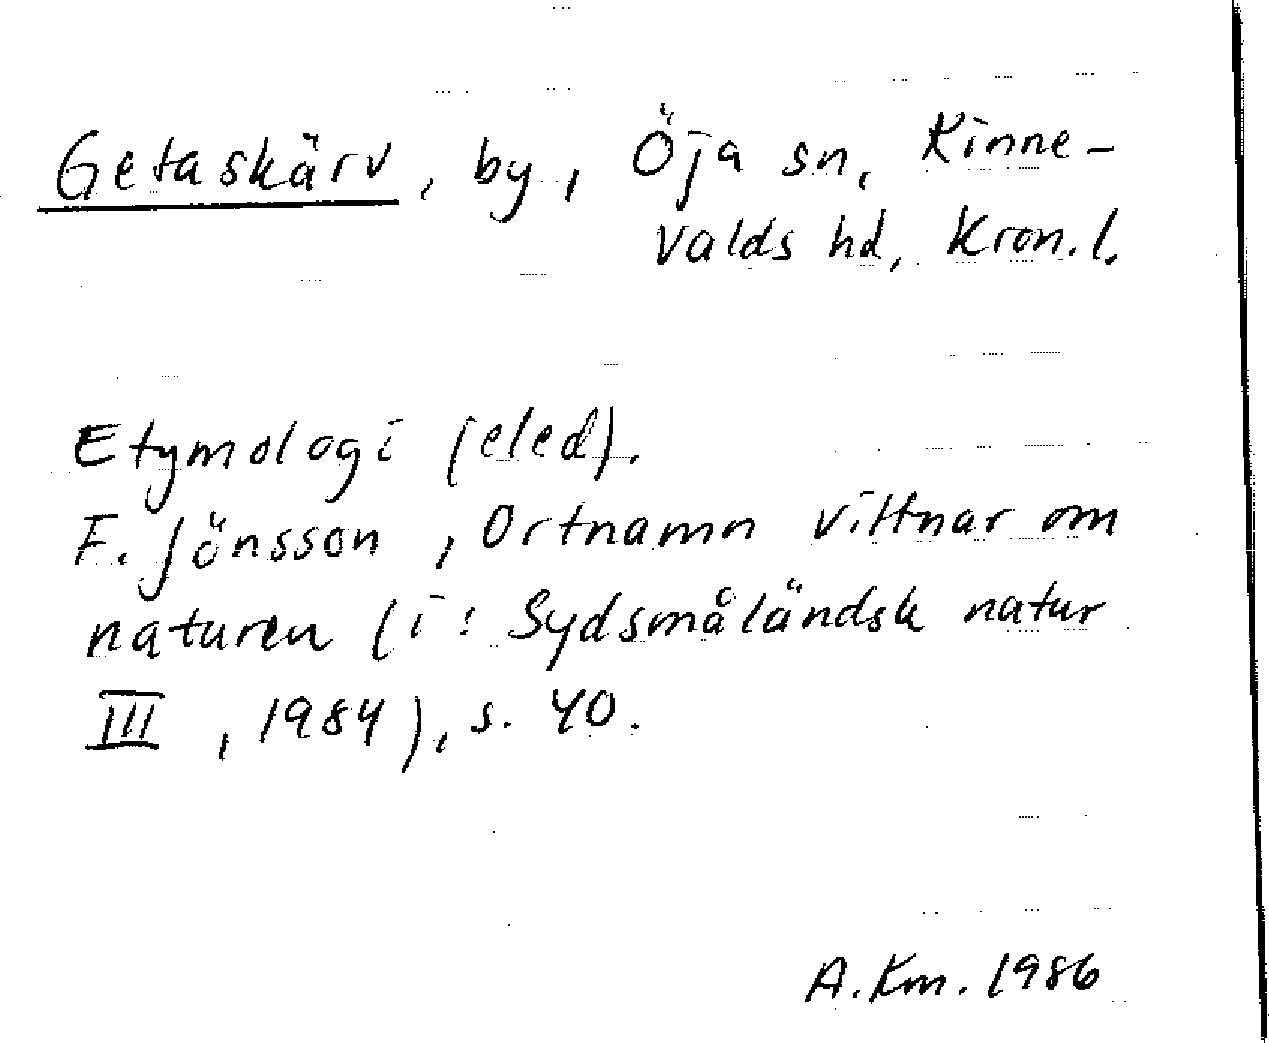 Getaskärv, by, Öja sn, Kinne-
valds hd, Kron.l.
Etymologi (eled).
F. Jönsson, Ortnamn vittnar om
naturen (i: Sydsmåländsk natur
III, 1984), s. 40.
A.Km. 1986